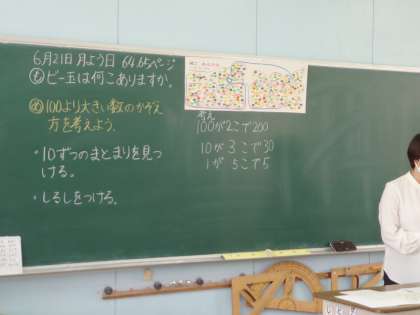 6月21日月よう日 64.65ページ
もビー玉は何こありますか。
め100より大きい数のかぞえ
方を考えよう。
・10ずつのまとまりを見つ
ける。
・しるしをつける。
考え
100が2こで200
10が3こで30
1が5こで5